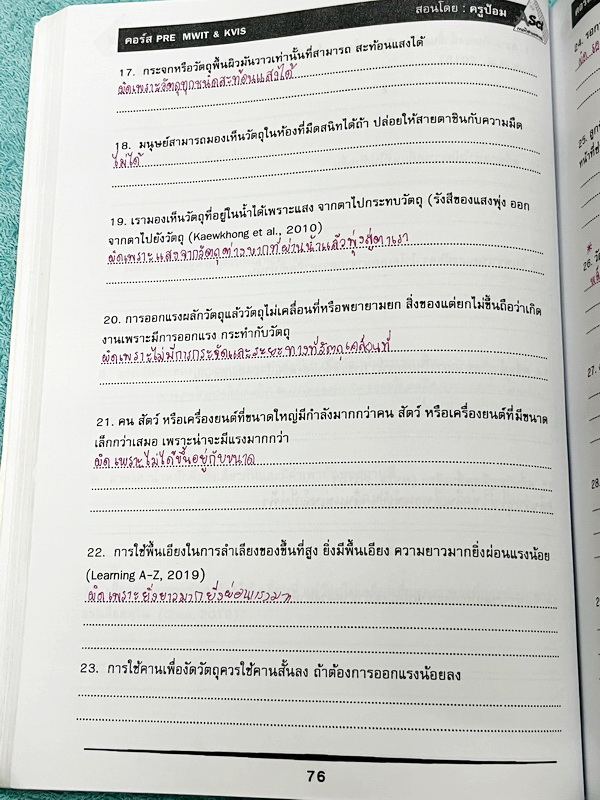 คอร์ส PRE MWIT & KVIS
สอนโดย : ครูป้อม
17. กระจกหรือวัตถุพื้นผิวมันวาวเท่านั้นที่สามารถ สะท้อนแสงได้
ผิดเพราะวัตถุทุกชนิดสะท้อนแสงได้
18. มนุษย์สามารถมองเห็นวัตถุในห้องที่มืดสนิทได้ถ้า ปล่อยให้สายตาชินกับความมืด
ไม่ได้
19. เรามองเห็นวัตถุที่อยู่ในน้ำได้เพราะแสง จากตาไปกระทบวัตถุ (รังสีของแสงพุ่ง ออก
จากตาไปยังวัตถุ (Kaewkhong et al., 2010)
ผิดเพราะแสงจากวัตถุต่างหากที่ผ่านน้ำแล้วพุ่งสู่ตาเรา
20. การออกแรงผลักวัตถุแล้ววัตถุไม่เคลื่อนที่หรือพยายามยก สิ่งของแต่ยกไม่ขึ้นถือว่าเกิด
งานเพราะมีการออกแรง กระทำกับวัตถุ
ผิดเพราะไม่มีการกระจัดและระยะทางที่วัตถุเคลื่อนที่
21. คน สัตว์ หรือเครื่องยนต์ที่ขนาดใหญ่มีกำลังมากกว่าคน สัตว์ หรือเครื่องยนต์ที่มีขนาด
เล็กกว่าเสมอ เพราะน่าจะมีแรงมากกว่า
ผิดเพราะไม่ได้ขึ้นอยู่กับขนาด
22. การใช้พื้นเอียงในการลำเลียงของขึ้นที่สูง ยิ่งมีพื้นเอียง ความยาวมากยิ่งผ่อนแรงน้อย
(Learning A-Z, 2019)
ผิดเพราะยิ่งยาวมากยิ่งผ่อนแรงมาก
23. การใช้คานเพื่องัดวัตถุควรใช้คานสั้นลง ถ้าต้องการออกแรงน้อยลง
76